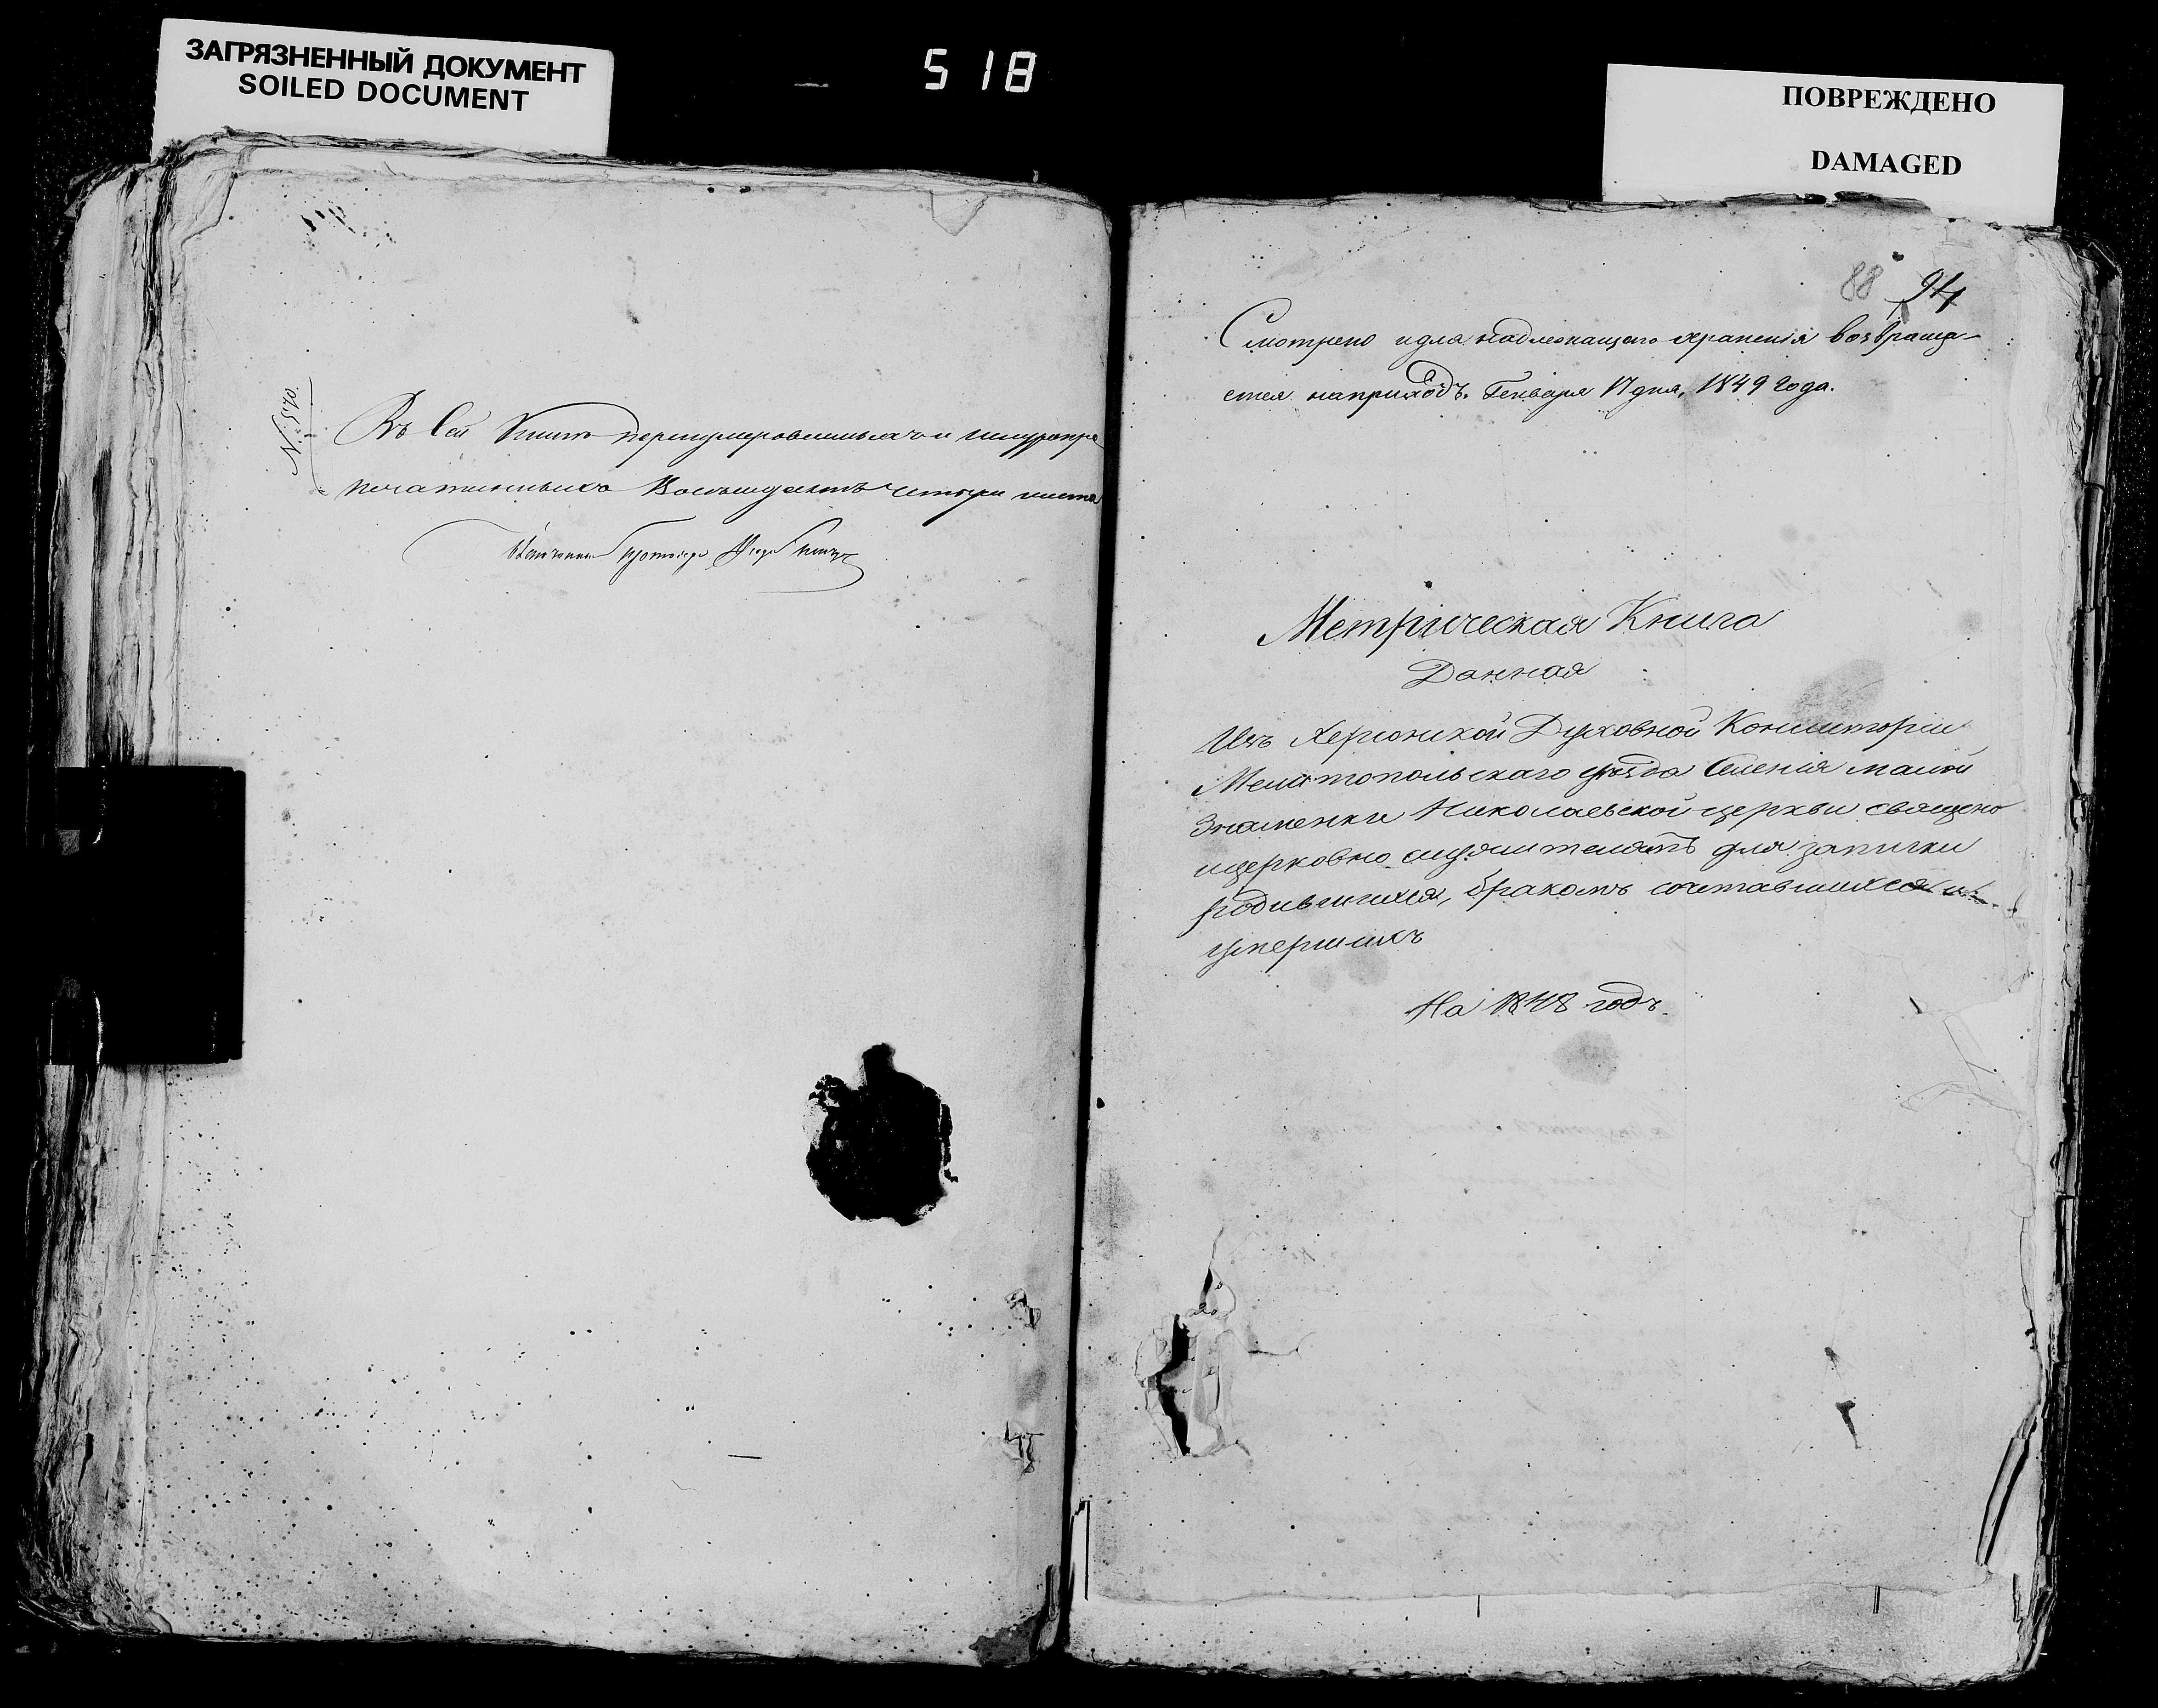 ЗАГРЯЗНЕННЫЙ ДОКУМЕНТ
SOILED DOCUMENT
518
ПОВРЕЖДЕНО
DAMAGED
№ 570.
Въ сей Книге перенумерованныхъ и шнуропре
печатанныхъ Восемдесятъ четыри листа
88 94
Смотрено и для надлежащаго храненія возвраща-
ется на приходъ. Генваря 17 дня, 1849 года.
Метрическая Книга
Данная
Изъ Херсонской Духовной Консисторіи
Мелитопольскаго уезда Селенія малой
Знаменки Николаевской церкви священо
и церковно служителямъ для записки
родившихся, бракомъ сочетавшихся и
умершихъ
На 1848 годъ.